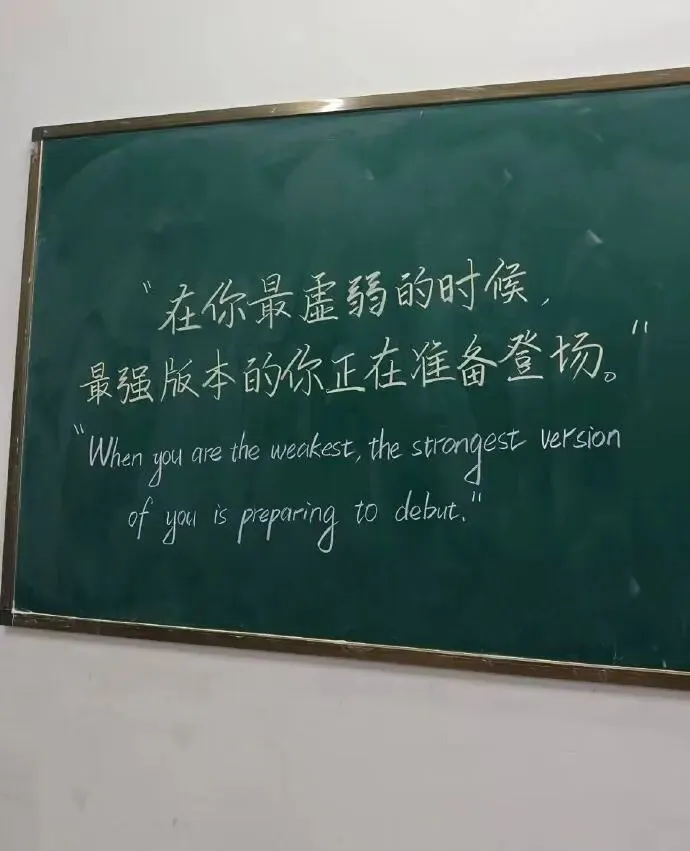 “在你最虚弱的时候，
最强版本的你正在准备登场。”
“When you are the weakest, the strongest version
of you is preparing to debut.”